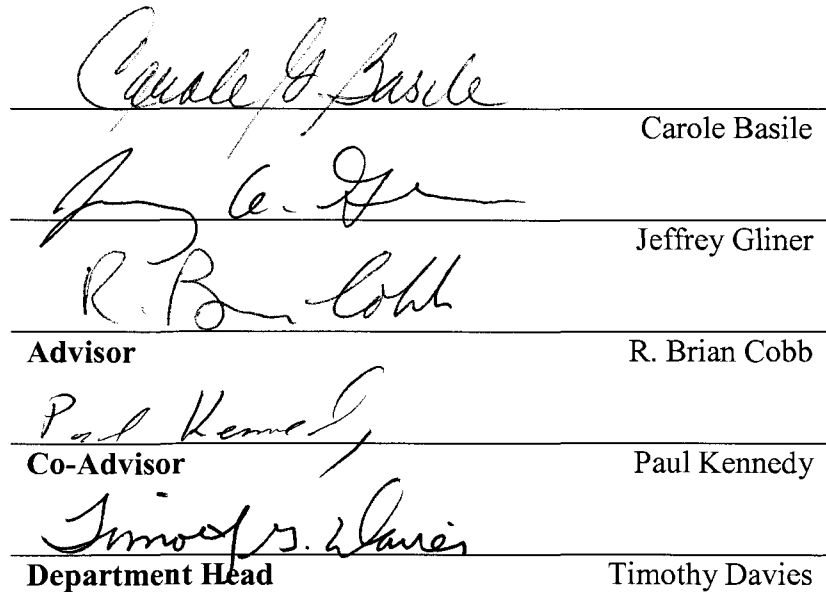 Carole G. Basile
Carole Basile
Jeffrey Gliner
R. Brian Cobb
Advisor R. Brian Cobb
Paul Kennedy
Co-Advisor Paul Kennedy
Timothy G. Davies
Department Head Timothy Davies